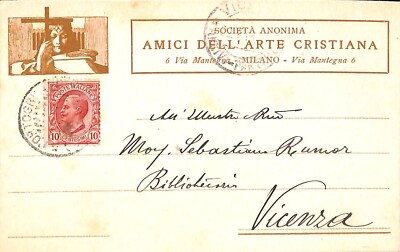 SOCIETÀ ANONIMA
AMICI DELL'ARTE CRISTIANA
6 Via Mantegna MILANO - Via Mantegna 6
POSTE ITALIANE
10 CENTESIMI 10
All' Illustre
Sebastiano Rumor
Bibliotecario
Vicenza